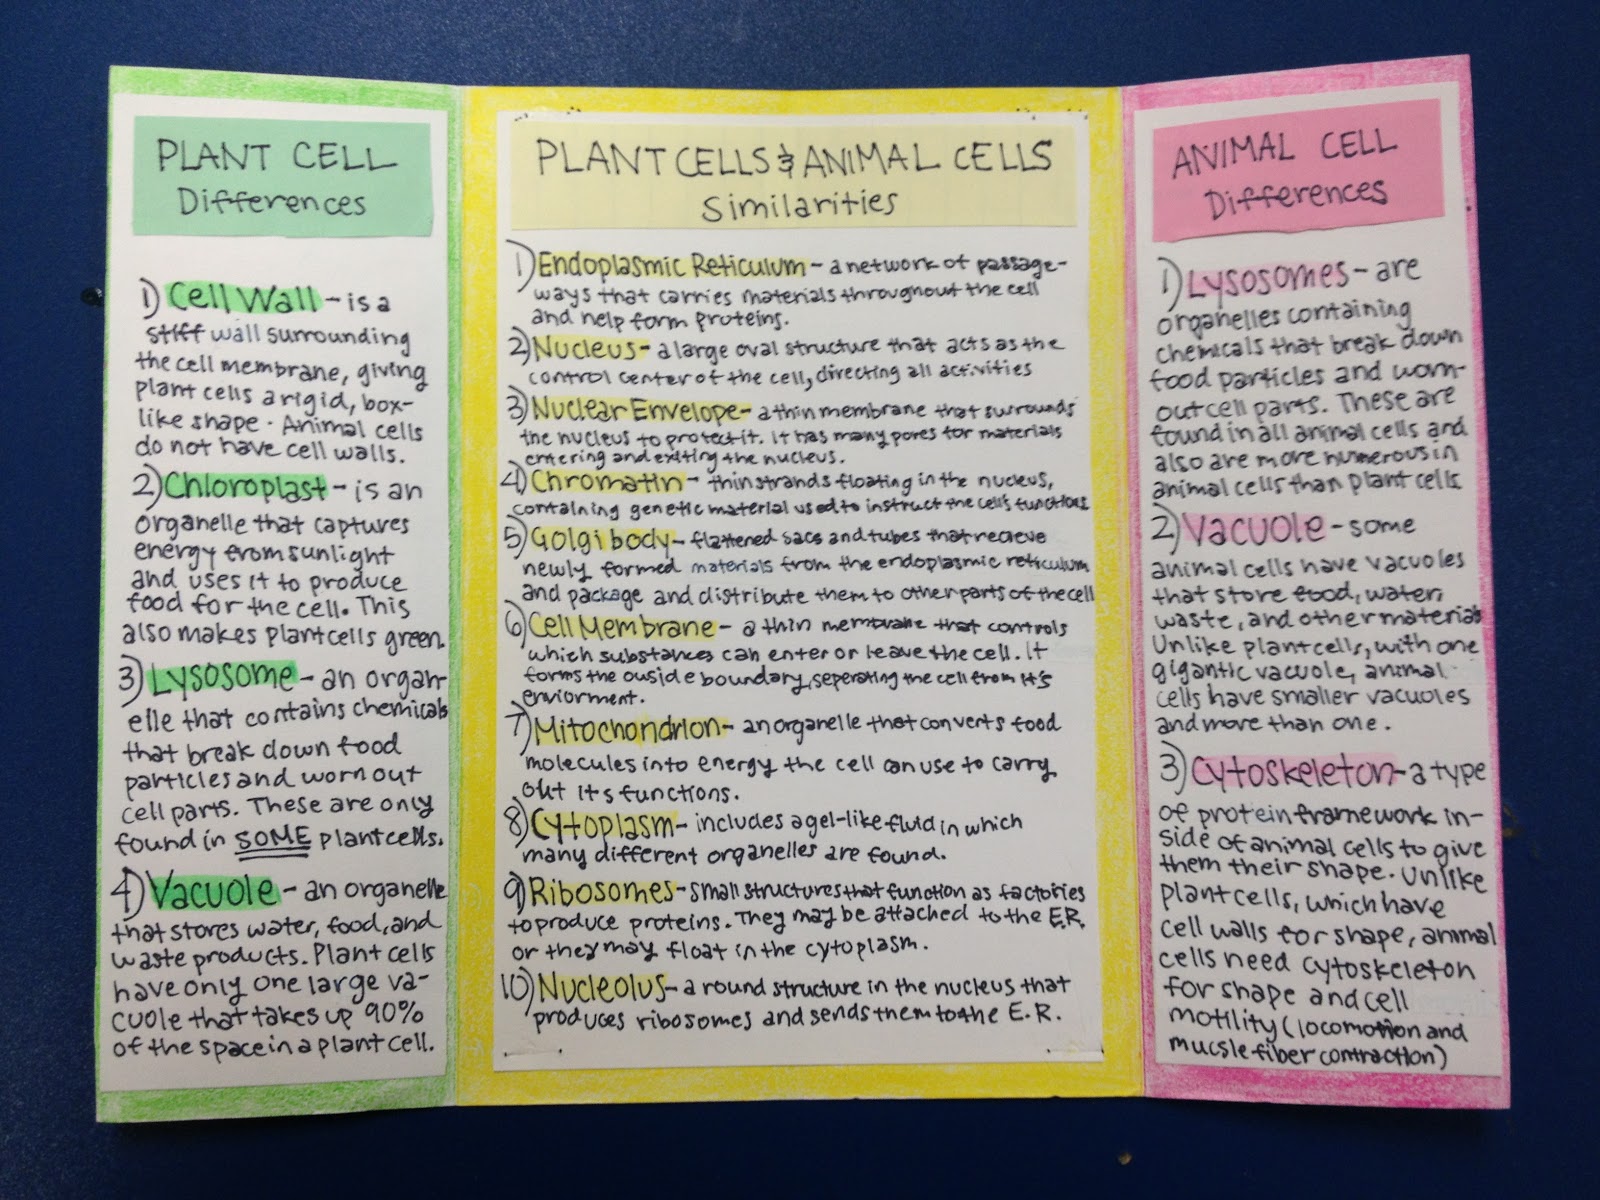 PLANT CELL
Differences
1) Cell Wall - is a
stiff wall surrounding
the cell membrane, giving
plant cells a rigid, box-
like shape. Animal cells
do not have cell walls.
2) Chloroplast - is an
organelle that captures
energy from sunlight
and uses it to produce
food for the cell. This
also makes plant cells green.
3) Lysosome - an organ-
elle that contains chemicals
that break down food
particles and worn out
cell parts. These are only
found in SOME plant cells.
4) Vacuole - an organelle
that stores water, food, and
waste products. Plant cells
have only one large va-
cuole that takes up 90%
of the space in a plant cell.
PLANT CELLS & ANIMAL CELLS
Similarities
1) Endoplasmic Reticulum - a network of passage-
ways that carries materials throughout the cell
and help form proteins.
2) Nucleus - a large oval structure that acts as the
control center of the cell, directing all activities
3) Nuclear Envelope - a thin membrane that surrounds
the nucleus to protect it. It has many pores for materials
entering and exiting the nucleus.
4) Chromatin - thin strands floating in the nucleus,
containing genetic material used to instruct the cell's functions
5) Golgi body - flattened sacs and tubes that recieve
newly formed materials from the endoplasmic reticulum
and package and distribute them to other parts of the cell
6) Cell Membrane - a thin membrane that controls
which substances can enter or leave the cell. It
forms the ouside boundary, seperating the cell from it's
enviorment.
7) Mitochondrion - an organelle that converts food
molecules into energy the cell can use to carry
out its functions.
8) Cytoplasm - includes a gel-like fluid in which
many different organelles are found.
9) Ribosomes - small structures that function as factories
to produce proteins. They may be attached to the E.R.
or they may float in the cytoplasm.
10) Nucleolus - a round structure in the nucleus that
produces ribosomes and sends them to the E.R.
ANIMAL CELL
Differences
1) Lysosomes - are
organelles containing
chemicals that break down
food particles and worn-
out cell parts. These are
found in all animal cells and
also are more numerous in
animal cells than plant cells
2) Vacuole - some
animal cells have vacuoles
that store food, water,
waste, and other materials
Unlike plant cells, with one
gigantic vacuole, animal
cells have smaller vacuoles
and more than one.
3) Cytoskeleton - a type
of protein framework in-
side of animal cells to give
them their shape. Unlike
plant cells, which have
cell walls for shape, animal
cells need cytoskeleton
for shape and cell
motility (locomotion and
mucsle fiber contraction)